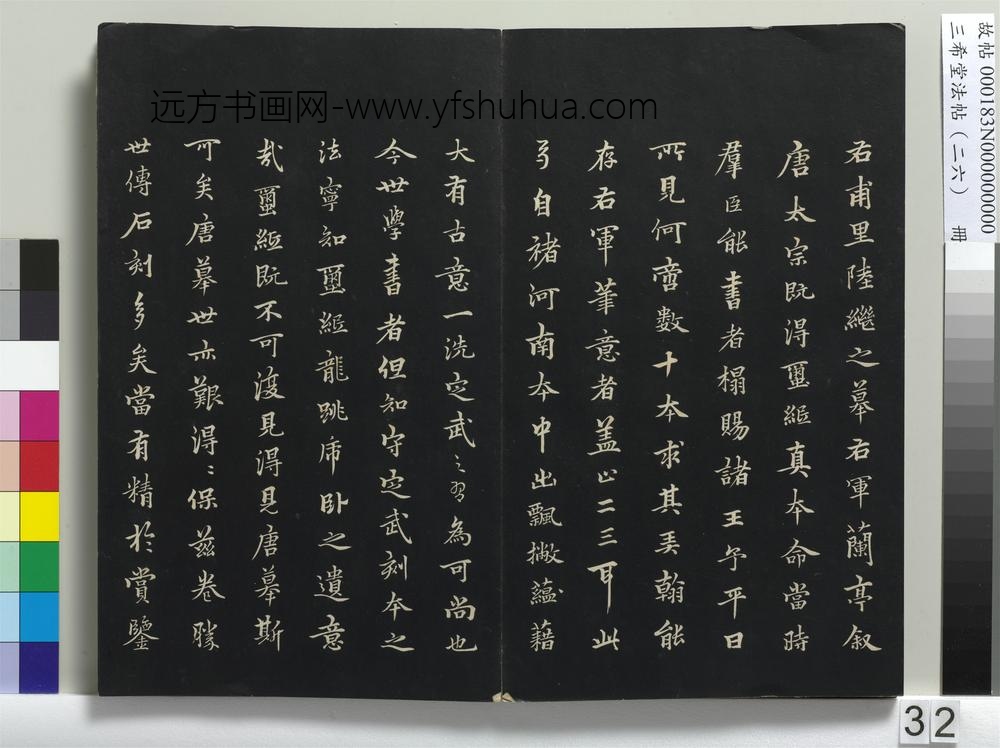 右甫里陸繼之摹右軍蘭亭叙
唐太宗既得璽紙真本命當時
羣臣能書者榻賜諸王予平日
所見何啻數十本求其弄翰能
存右軍筆意者盖止二三耳此
号自禇河南本中出飄撇蘊藉
大有古意一洗定武之習為可尚也
今世學書者但知守定武刻本之
法寧知璽紙龍跳虎卧之遺意
哉璽紙既不可復見得見唐摹斯
可矣唐摹世亦艱得得保兹卷勝
世傳石刻多矣當有精於賞鑒
远方书画网-www.yfshuhua.com
故帖000183N000000000
三希堂法帖（二六） 冊
32